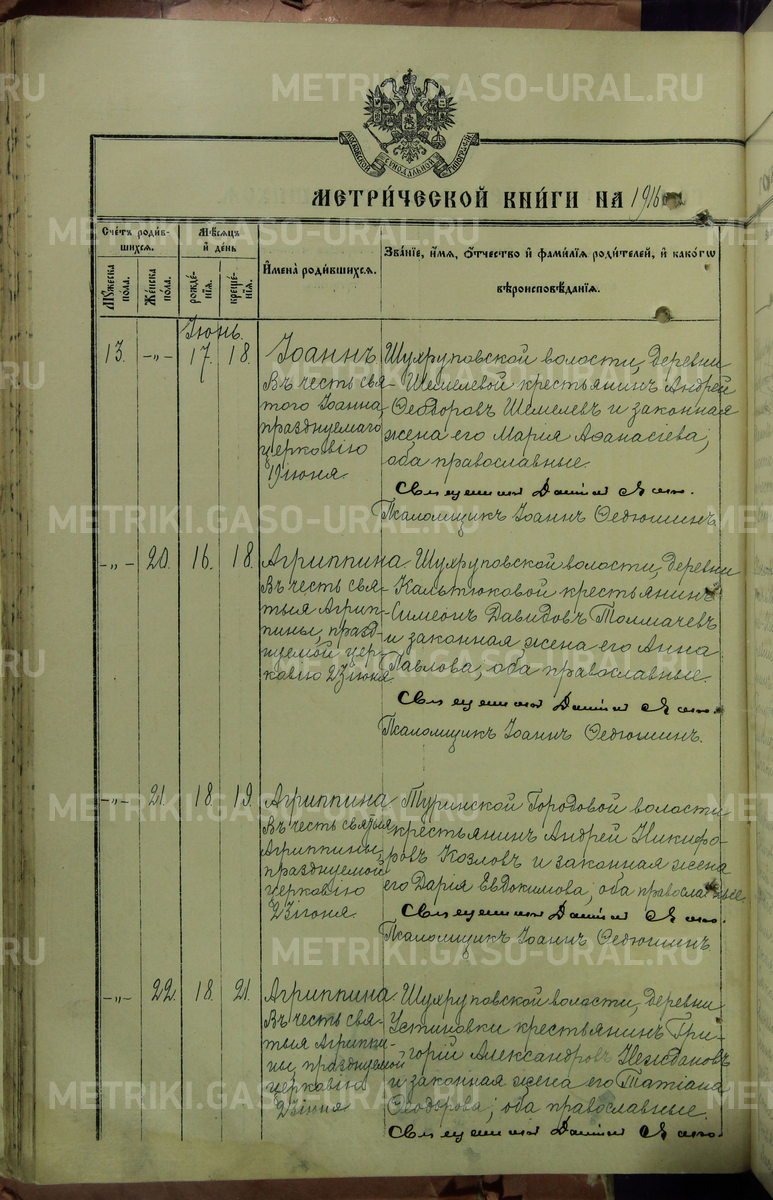 МОСКОВСКОЙ СѴНОДАЛЬНОЙ ТИПОГРАФІИ
МЕТРИ́ЧЕСКОЙ КНИ́ГИ НА 1916
Сче́тъ роди́в-
шихся.
Му́жеска по́ла.
Же́нска по́ла.
Мѣ́сяцъ
и́ де́нь
рожде́-
нія.
креще́-
нія.
И҆мена̀ роди́вшихся.
Зва́нїе, и҆́мя, ѻ҆́тчество и҆ фами́лїя роди́телей, и҆ како́гѡ
вѣроисповѣ́данїя.
Іюнь.
13. -„- 17. 18.
Іоаннъ
Въ честь свя-
того Іоанна,
празднуемаго
церковію
19 іюня.
Шухруповской волости, деревни
Шемелевой крестьянинъ Андрей
Ѳеодоровъ Шемелевъ и законная
жена его Марія Аѳанасіева;
оба православные.
Священникъ
Псаломщикъ Іоаннъ Ѳедюшинъ
-„- 20. 16. 18.
Агриппина
Въ честь свя-
тыя Агрип-
пины, празд-
нуемой цер-
ковію 23 іюня
Шухруповской волости, деревни
Калтюковой крестьянинъ
Симеонъ Давидовъ Толмачевъ
и законная жена его Анна
Павлова; оба православные.
Священникъ
Псаломщикъ Іоаннъ Ѳедюшинъ.
-„- 21. 18. 19.
Агриппина
Въ честь святыя
Агриппины,
празднуемой
церковію
23 іюня.
Туринской Городовой волости
крестьянинъ Андрей Никифо-
ровъ Козловъ и законная жена
его Дарія Евдокимова; оба православные.
Священникъ
Псаломщикъ Іоаннъ Ѳедюшинъ
-„- 22. 18. 21.
Агриппина
Въ честь свя-
тыя Агриппи-
ны, празднуемой
церковію
23 іюня
Шухруповской волости, деревни
Устиновки крестьянинъ Гри-
горій Александровъ Нежdановъ
и законная жена его Татіана
Ѳеодорова; оба православные.
Священникъ
METRIKI.GASO-URAL.RU